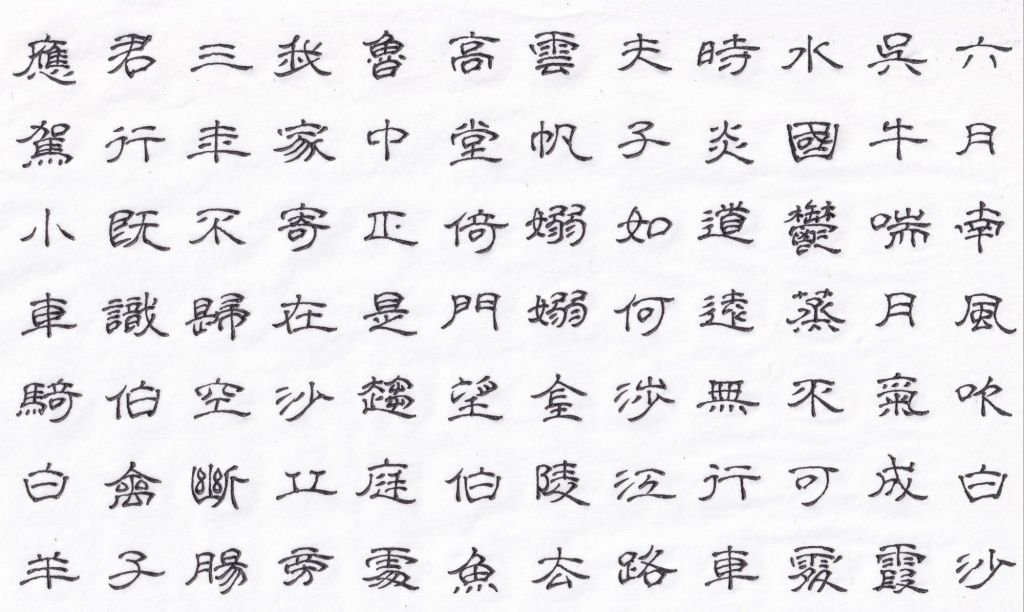 六月南風吹白沙
吳牛喘月氣成霞
水國鬱蒸不可處
時炎道遠無行車
夫子如何涉江路
雲帆嫋嫋金陵去
高堂倚門望伯魚
魯中正是趨庭處
我家寄在沙丘旁
三年不歸空斷腸
君行既識伯禽子
應駕小車騎白羊